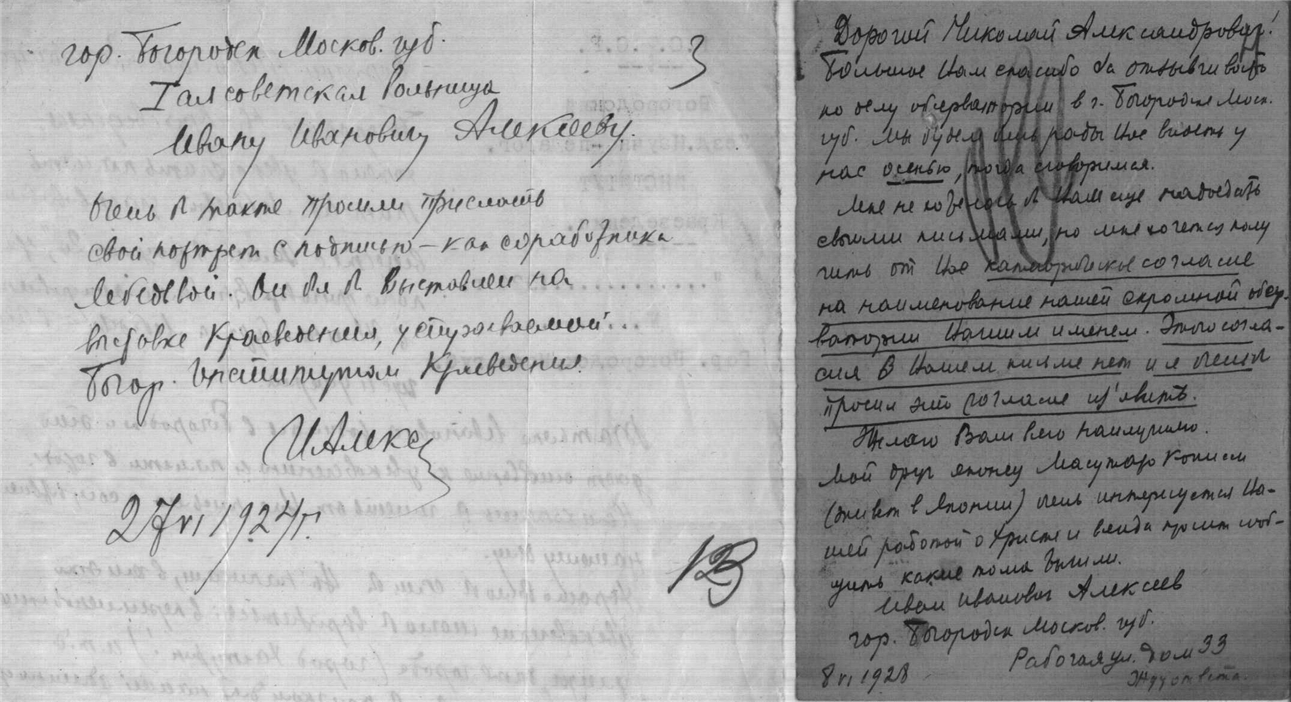 гор. Богородск Москов. губ.
Главсоветская больница
Ивану Ивановичу Алексееву.
3
Очень б также просил прислать
свой портрет с подписью – как соработника
Лебедевой. Он был б выставлен на
выставке Краеведения, устраиваемой...
Богор. Институтом Краеведения.
ИАлекс
27 VI 1924 г.
123
Дорогой Николай Александрович!
Большое Вам спасибо за отзывчивость
по делу обсерватории в г. Богородске Моск.
губ. Мы будем очень рады Вас видеть у
нас осенью, тогда сговоримся.
Мне не хотелось б Вам еще надоедать
своими письмами, но мне хочется полу
чить от Вас категорическое согласие
на наименование нашей скромной обсер-
ватории Вашим именем. Этого согла-
сия в Вашем письме нет и я очень б
просил это согласие из'явить.
Желаю Вам всего наилучшего.
Мой друг японец Масутаро Кониси
(живет в Японии) очень интересуется Ва-
шей работой о Христе и всегда просит сооб-
щить какие тома вышли.
Иван Иванович Алексеев
гор. Богородск Москов. губ.
Рабочая ул. дом 33
8 VI 1928
Жду ответа.